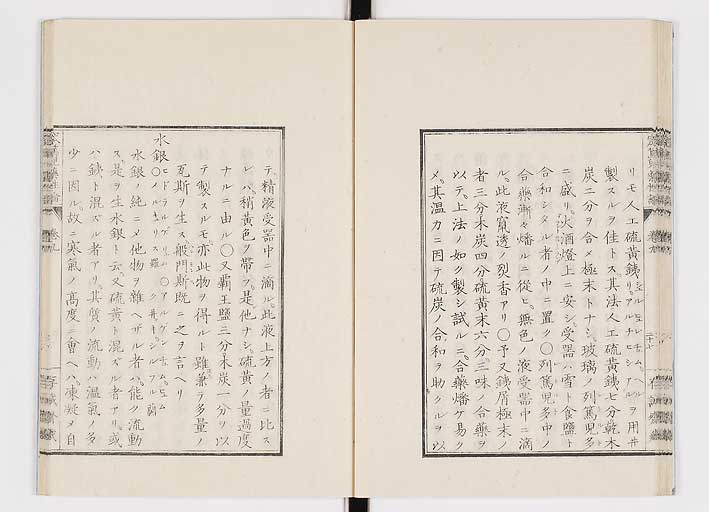 リモ人工硫黄銕リ。アルチヒシアルヲ用井
製スルヲ佳トス其法人工硫黄銕七分乾木
炭二分ヲ合メ極末トナシ。玻璃ノ列篤児多
ニ盛リ。火酒燈上ニ安シ。受器ハ雪ト食鹽ト
合和シタル者ノ中ニ置ク〇列篤児多中ノ
合藥漸々燔ルニ從ヒ。無色ノ液受器中ニ滴
ル。此液竄透ノ烈香アリ〇予又銕屑極末ノ
者三分木炭四分硫黄末六分三味ノ合藥ヲ
以テ。上法ノ如ク製シ試ルニ。合藥燔ケ易ク
メ。其温力ニ因テ硫炭ノ合和ヲ助クルヲ以
テ。精液受器中ニ滴ル。此液上方ノ者ニ比ス
レハ。稍黄色ヲ帶フ。是他ナシ。硫黄ノ量過度
ナルニ由ル〇又覇王鹽三分木炭一分ヲ以
テ製スルモ。亦此物ヲ得ルト雖𪜈兼テ多量ノ
瓦斯ヲ生ス般門斯既ニ之ヲ言ヘリ
水銀
水銀ノ純ニメ他物ヲ雜ヘザル者ハ。能ク流動
ス是ヲ生水銀ト云。又硫黄ト混ズル者アリ。或
ハ銕ト混ズル者アリ。其質ノ流動ハ温氣ノ多
少ニ因ル。故ニ寒氣ノ高度ニ會ヘハ。凍凝メ自